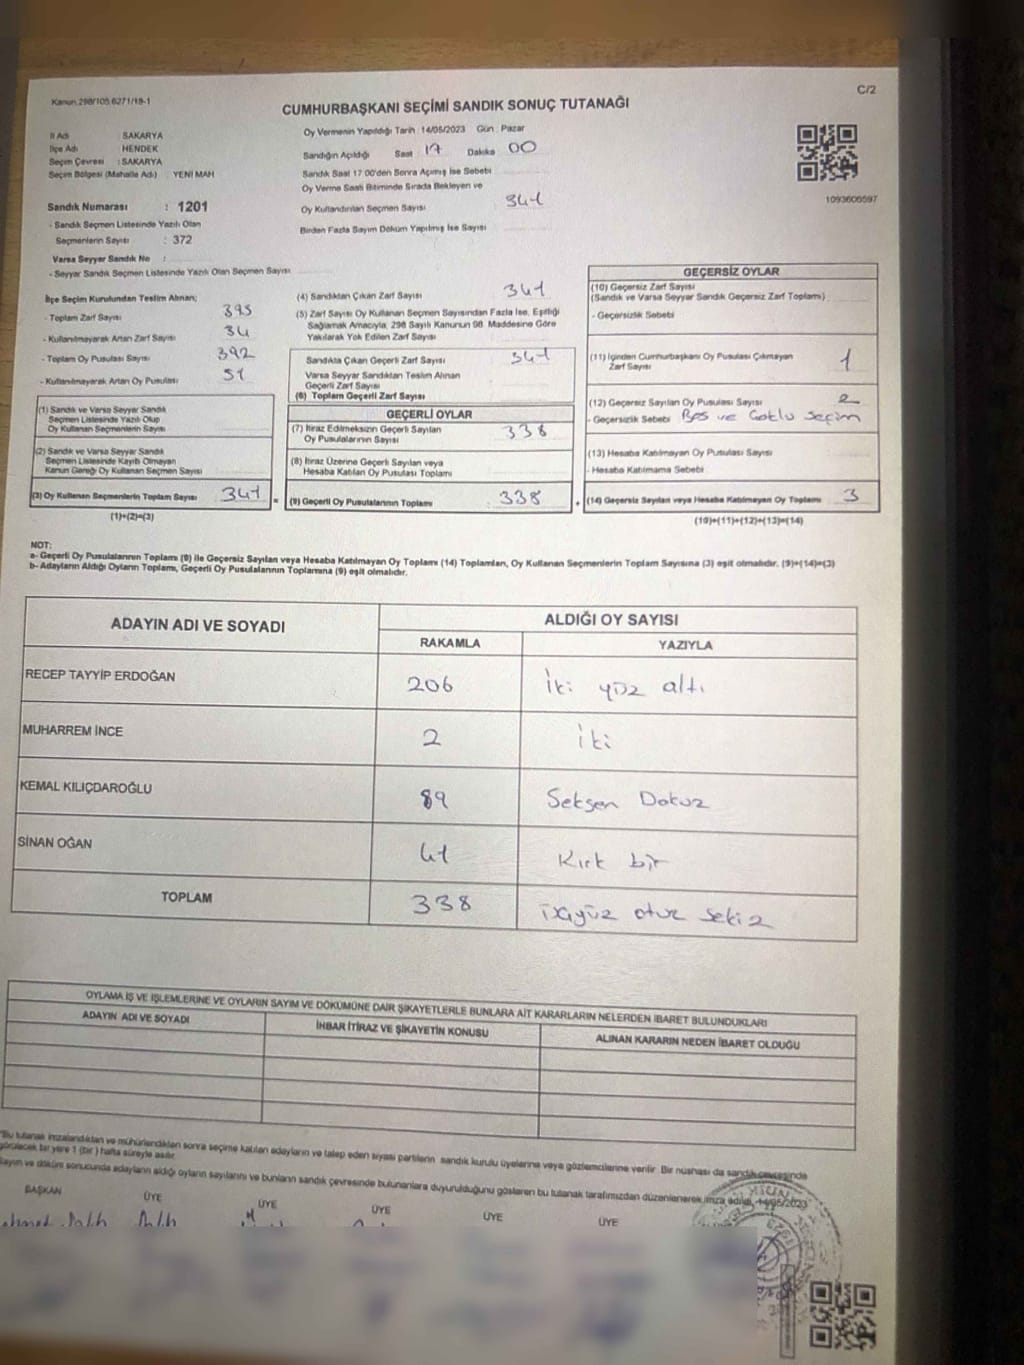 Kanun.298/105.6271/18-1
C/2
CUMHURBAŞKANI SEÇİMİ SANDIK SONUÇ TUTANAĞI
İl Adı SAKARYA
İlçe Adı HENDEK
Seçim Çevresi : SAKARYA
Seçim Bölgesi (Mahalle Adı) YENİ MAH
Sandık Numarası : 1201
- Sandık Seçmen Listesinde Yazılı Olan
Seçmenlerin Sayısı : 372
Varsa Seyyar Sandık No :
- Seyyar Sandık Seçmen Listesinde Yazılı Olan Seçmen Sayısı
Oy Vermenin Yapıldığı Tarih : 14/05/2023 Gün : Pazar
Sandığın Açıldığı Saat 17 Dakika 00
Sandık Saat 17.00'den Sonra Açılmış İse Sebebi
Oy Verme Saati Bitiminde Sırada Bekleyen ve
Oy Kullandırılan Seçmen Sayısı 341
Birden Fazla Sayım Döküm Yapılmış İse Sayısı
1093606597
İlçe Seçim Kurulundan Teslim Alınan;
- Toplam Zarf Sayısı 395
- Kullanılmayarak Artan Zarf Sayısı 34
- Toplam Oy Pusulası Sayısı 392
- Kullanılmayarak Artan Oy Pusulası 51
(1) Sandık ve Varsa Seyyar Sandık
Seçmen Listesinde Yazılı Olup
Oy Kullanan Seçmenlerin Sayısı
(2) Sandık ve Varsa Seyyar Sandık
Seçmen Listesinde Kayıtlı Olmayan
Kanun Gereği Oy Kullanan Seçmen Sayısı
(3) Oy Kullanan Seçmenlerin Toplam Sayısı 341 =
(1)+(2)=(3)
(4) Sandıktan Çıkan Zarf Sayısı 341
(5) Zarf Sayısı Oy Kullanan Seçmen Sayısından Fazla İse, Eşitliği
Sağlamak Amacıyla, 298 Sayılı Kanunun 98. Maddesine Göre
Yakılarak Yok Edilen Zarf Sayısı
Sandıkta Çıkan Geçerli Zarf Sayısı 341
Varsa Seyyar Sandıktan Teslim Alınan
Geçerli Zarf Sayısı
(6) Toplam Geçerli Zarf Sayısı
GEÇERLİ OYLAR
(7) İtiraz Edilmeksizin Geçerli Sayılan
Oy Pusulalarının Sayısı 338
(8) İtiraz Üzerine Geçerli Sayılan veya
Hesaba Katılan Oy Pusulası Toplamı
(9) Geçerli Oy Pusulalarının Toplamı 338 +
GEÇERSİZ OYLAR
(10) Geçersiz Zarf Sayısı
(Sandık ve Varsa Seyyar Sandık Geçersiz Zarf Toplamı)
- Geçersizlik Sebebi
(11) İçinden Cumhurbaşkanı Oy Pusulası Çıkmayan
Zarf Sayısı 1
(12) Geçersiz Sayılan Oy Pusulası Sayısı 2
- Geçersizlik Sebebi Boş ve Çoklu Seçim
(13) Hesaba Katılmayan Oy Pusulası Sayısı
- Hesaba Katılmama Sebebi
(14) Geçersiz Sayılan veya Hesaba Katılmayan Oy Toplamı 3
(10)+(11)+(12)+(13)=(14)
NOT:
a- Geçerli Oy Pusulalarının Toplamı (9) ile Geçersiz Sayılan veya Hesaba Katılmayan Oy Toplamı (14) Toplamları, Oy Kullanan Seçmenlerin Toplam Sayısına (3) eşit olmalıdır. (9)+(14)=(3)
b- Adayların Aldığı Oyların Toplamı, Geçerli Oy Pusulalarının Toplamına (9) eşit olmalıdır.
ADAYIN ADI VE SOYADI
ALDIĞI OY SAYISI
RAKAMLA YAZIYLA
RECEP TAYYİP ERDOĞAN 206 İki yüz altı
MUHARREM İNCE 2 İki
KEMAL KILIÇDAROĞLU 89 Seksen Dokuz
SİNAN OĞAN 41 Kırk bir
TOPLAM 338 üçyüz otuz sekiz
OYLAMA İŞ VE İŞLEMLERİNE VE OYLARIN SAYIM VE DÖKÜMÜNE DAİR ŞİKAYETLERLE BUNLARA AİT KARARLARIN NELERDEN İBARET BULUNDUKLARI
ADAYIN ADI VE SOYADI İHBAR İTİRAZ VE ŞİKAYETİN KONUSU ALINAN KARARIN NEDEN İBARET OLDUĞU
"Bu tutanak imzalandıktan ve mühürlendikten sonra seçime katılan adayların ve talep eden siyasi partilerin sandık kurulu üyelerine veya gözlemcilerine verilir. Bir nüshası da sandık çevresinde
görülecek bir yere 1 (bir) hafta süreyle asılır.
Sayım ve döküm sonucunda adayların aldığı oyların sayılarını ve bunların sandık çevresinde bulunanlara duyurulduğunu gösteren bu tutanak tarafımızdan düzenlenerek imza edildi. 14/05/2023
BAŞKAN ÜYE ÜYE ÜYE ÜYE ÜYE